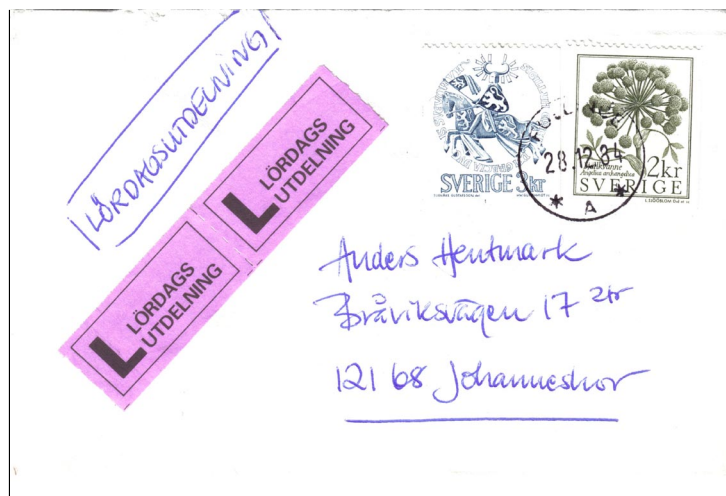 LÖRDAGSUTDELNING
L LÖRDAGS
UTDELNING
L LÖRDAGS
UTDELNING
SVERIGE 3 kr
28.12.84
A
Kvanne
Angelica archangelica
2kr
SVERIGE
Anders Hentmark
Bråviksvägen 17 2tr
121 68 Johanneshov